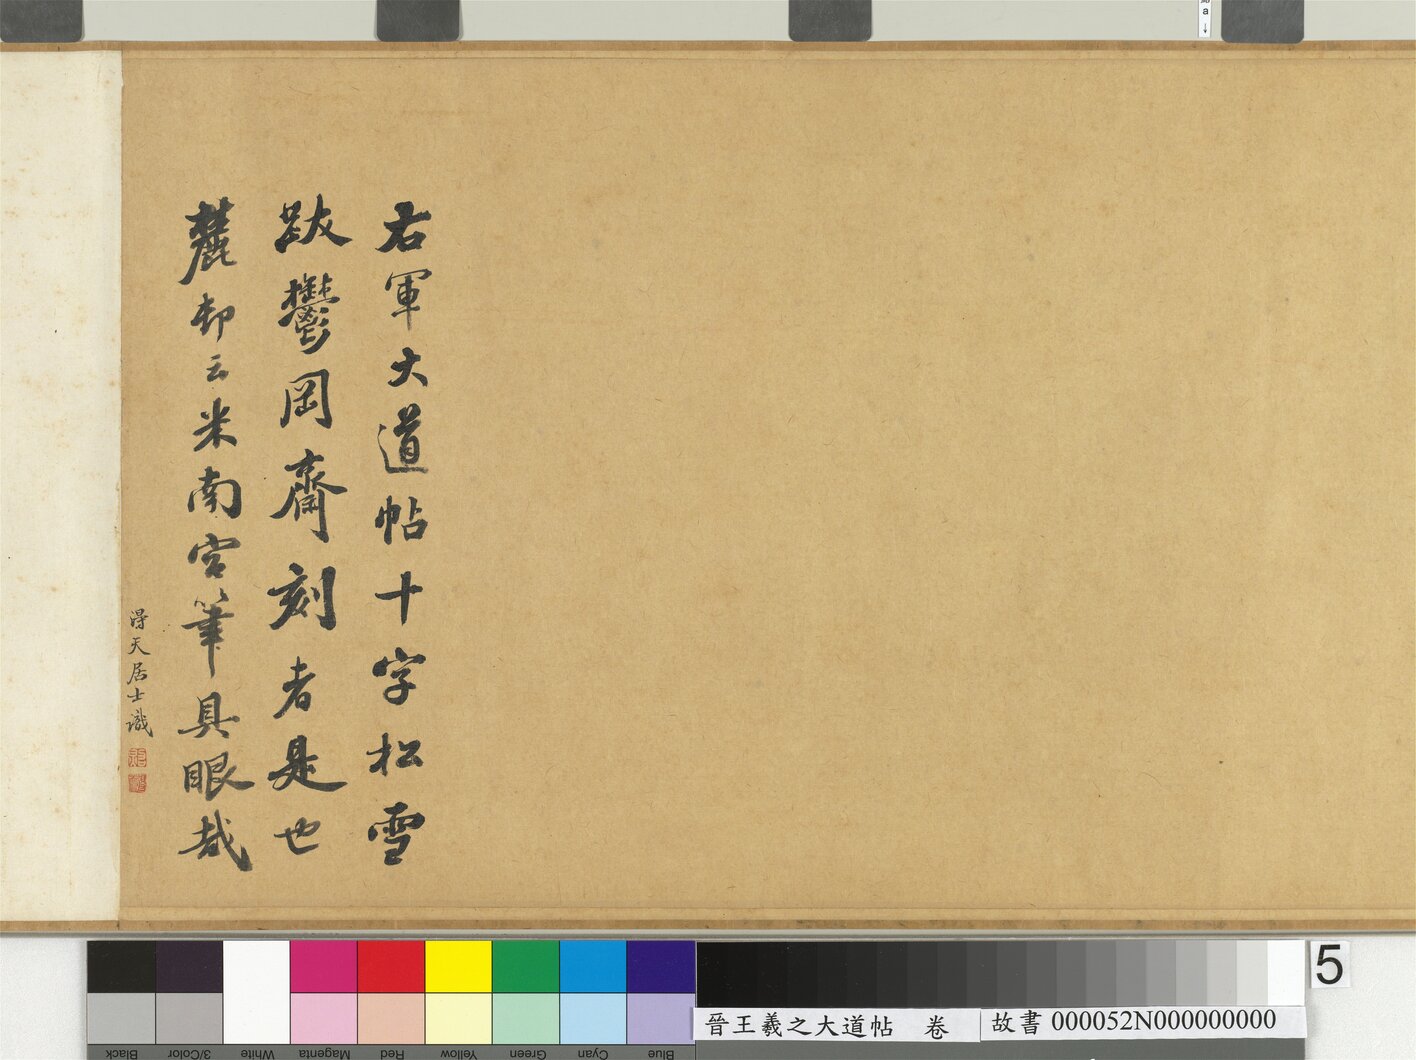 右軍大道帖十字松雪
跋鬱岡齋刻者是也
麓邨云米南宮筆具眼哉
得天居士識
a
5
晉王羲之大道帖 卷
故書 000052N000000000
Black
3/Color
White
Magenta
Red
Yellow
Green
Cyan
Blue